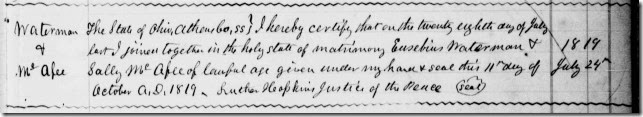 Waterman The State of Ohio, Athens Co, SS} I hereby certify that on the twenty eighth day of July
& last I joined together in the holy state of matrimony Eusebius Waterman & 1819
Mc Afee Sally Mc Afee of lawful age given under my hand & seal this 11th day of July 28th
October A.D. 1819. Hopkins Justice of the Peace (seal)